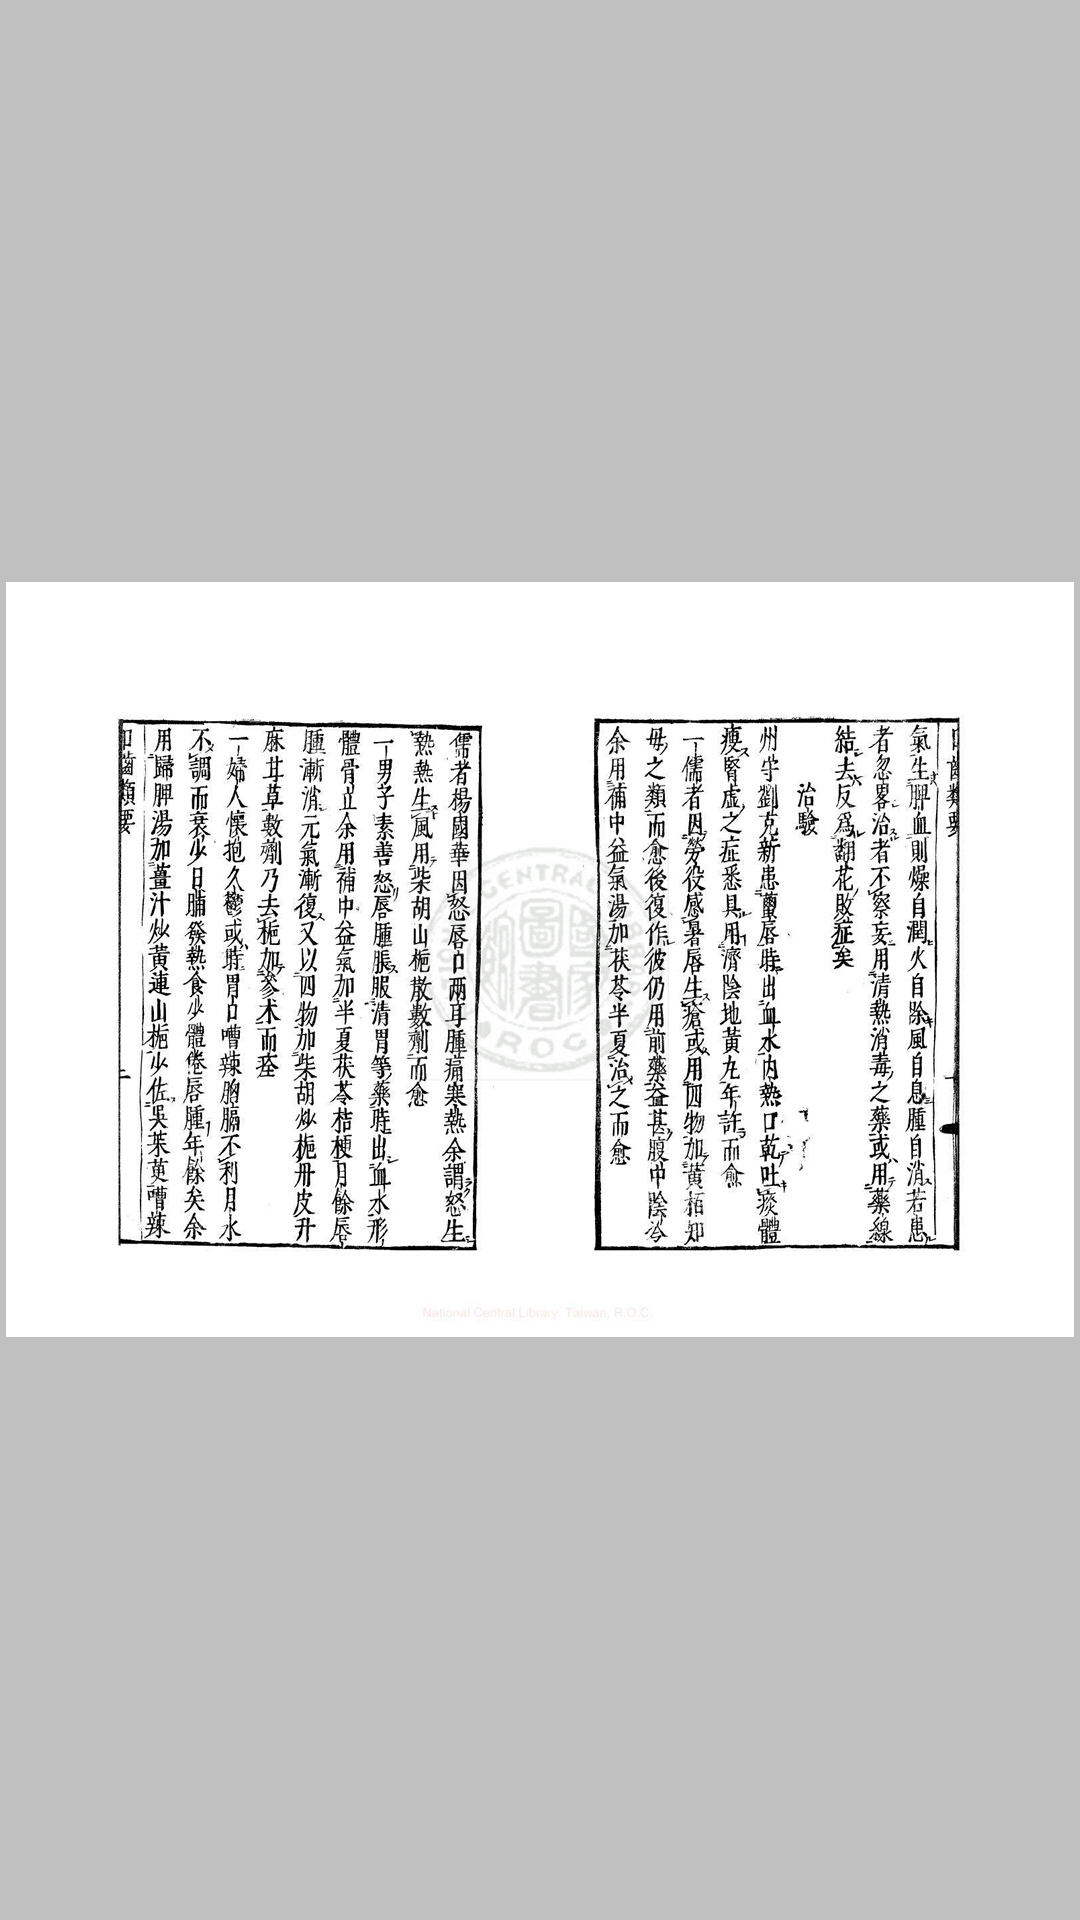 氣生脾血則燥自潤火自除風自息腫自消若患
者忽畧治者不察妄用清熱消毒之藥或用藥線
結去反爲翻花敗症矣
治驗
州守劉克新患繭唇時出血水内熱口乾吐痰體
瘦腎虛之症悉具用濟陰地黃丸年許而愈
一儒者因勞役感暑唇生瘡或用四物加黃柏知
母之類而愈後復作彼仍用前藥益甚腹中陰冷
余用補中益氣湯加茯苓半夏治之而愈
儒者楊國華因怒唇口兩耳腫痛寒熱余謂怒生
熱熱生風用柴胡山梔散數劑而愈
一男子素善怒唇腫脹服清胃等藥時出血水形
體骨立余用補中益氣加半夏茯苓桔梗月餘唇
腫漸消元氣漸復又以四物加柴胡炒梔丹皮升
麻甘草數劑乃去梔加參术而痊
一婦人懷抱久鬱或時胃口嘈辣胸膈不利月水
不調而衰少日晡發熱食少體倦唇腫年餘矣余
用歸脾湯加薑汁炒黃連山梔少佐吳茱萸嘈辣
口齒類要
二
National Central Library, Taiwan, R.O.C.